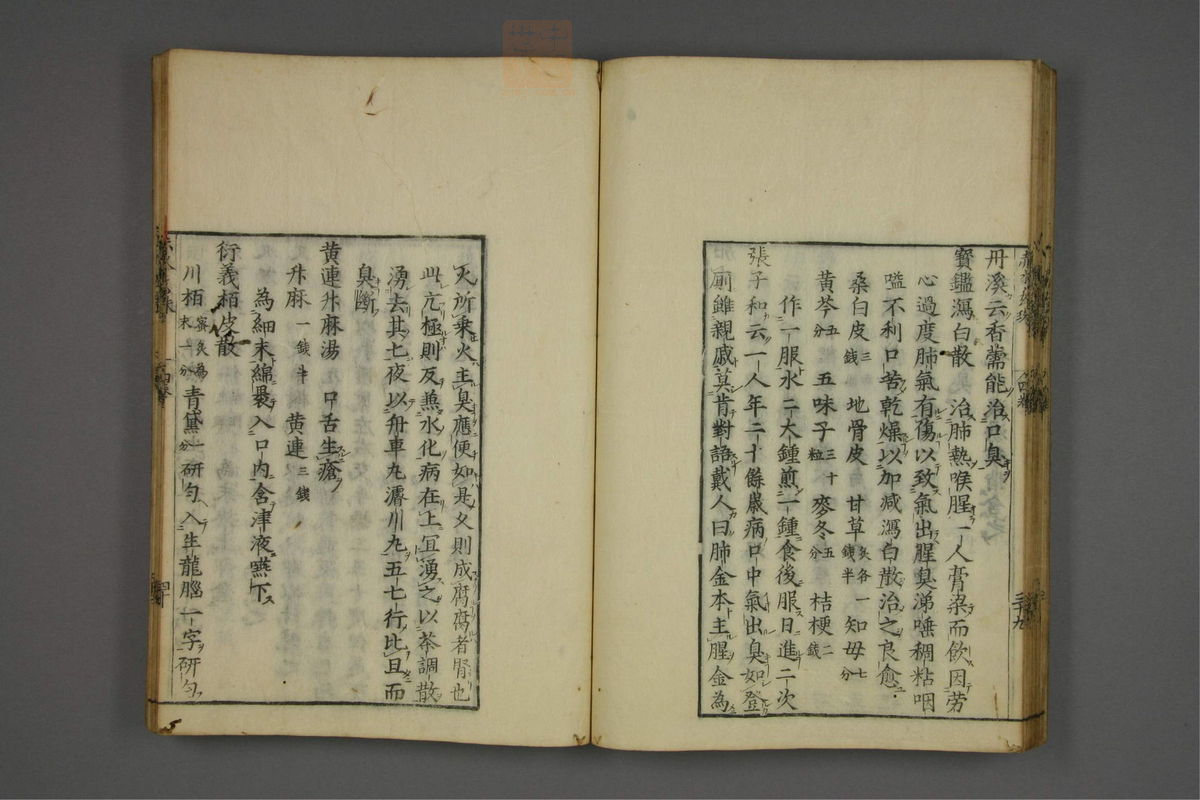 丹溪云香薷能治口臭
寳鑑瀉白散 治肺熱喉腥一人膏粱而飲因劳
心過度肺氣有傷以致氣出腥臭涕唾稠粘咽
嗌不利口苦乾燥以加减瀉白散治之良愈
桑白皮三錢 地骨皮 甘草炙各一錢半 知母七分
黄芩五分 五味子三十粒 麥冬五分 桔梗二錢
作一服水二大鍾煎一鍾食後服日進二次
張子和云一人年二十餘歳病口中氣出臭如登
厠雖親戚莫肯對語戴人曰肺金本主腥金為
火所乗火主臭應便如是久則成腐腐者腎也
此亢極則反兼水化病在上冝湧之以茶調散
湧去其七夜以舟車丸濬川丸五七行比旦而
臭断
黄連升麻湯 口舌生瘡
升麻一錢半 黄連三錢
為細末綿裹入口内含津液嚥下
衍義栢皮散
川栢蜜炙為末一分 青黛一分研匀入生龍腦一字研匀